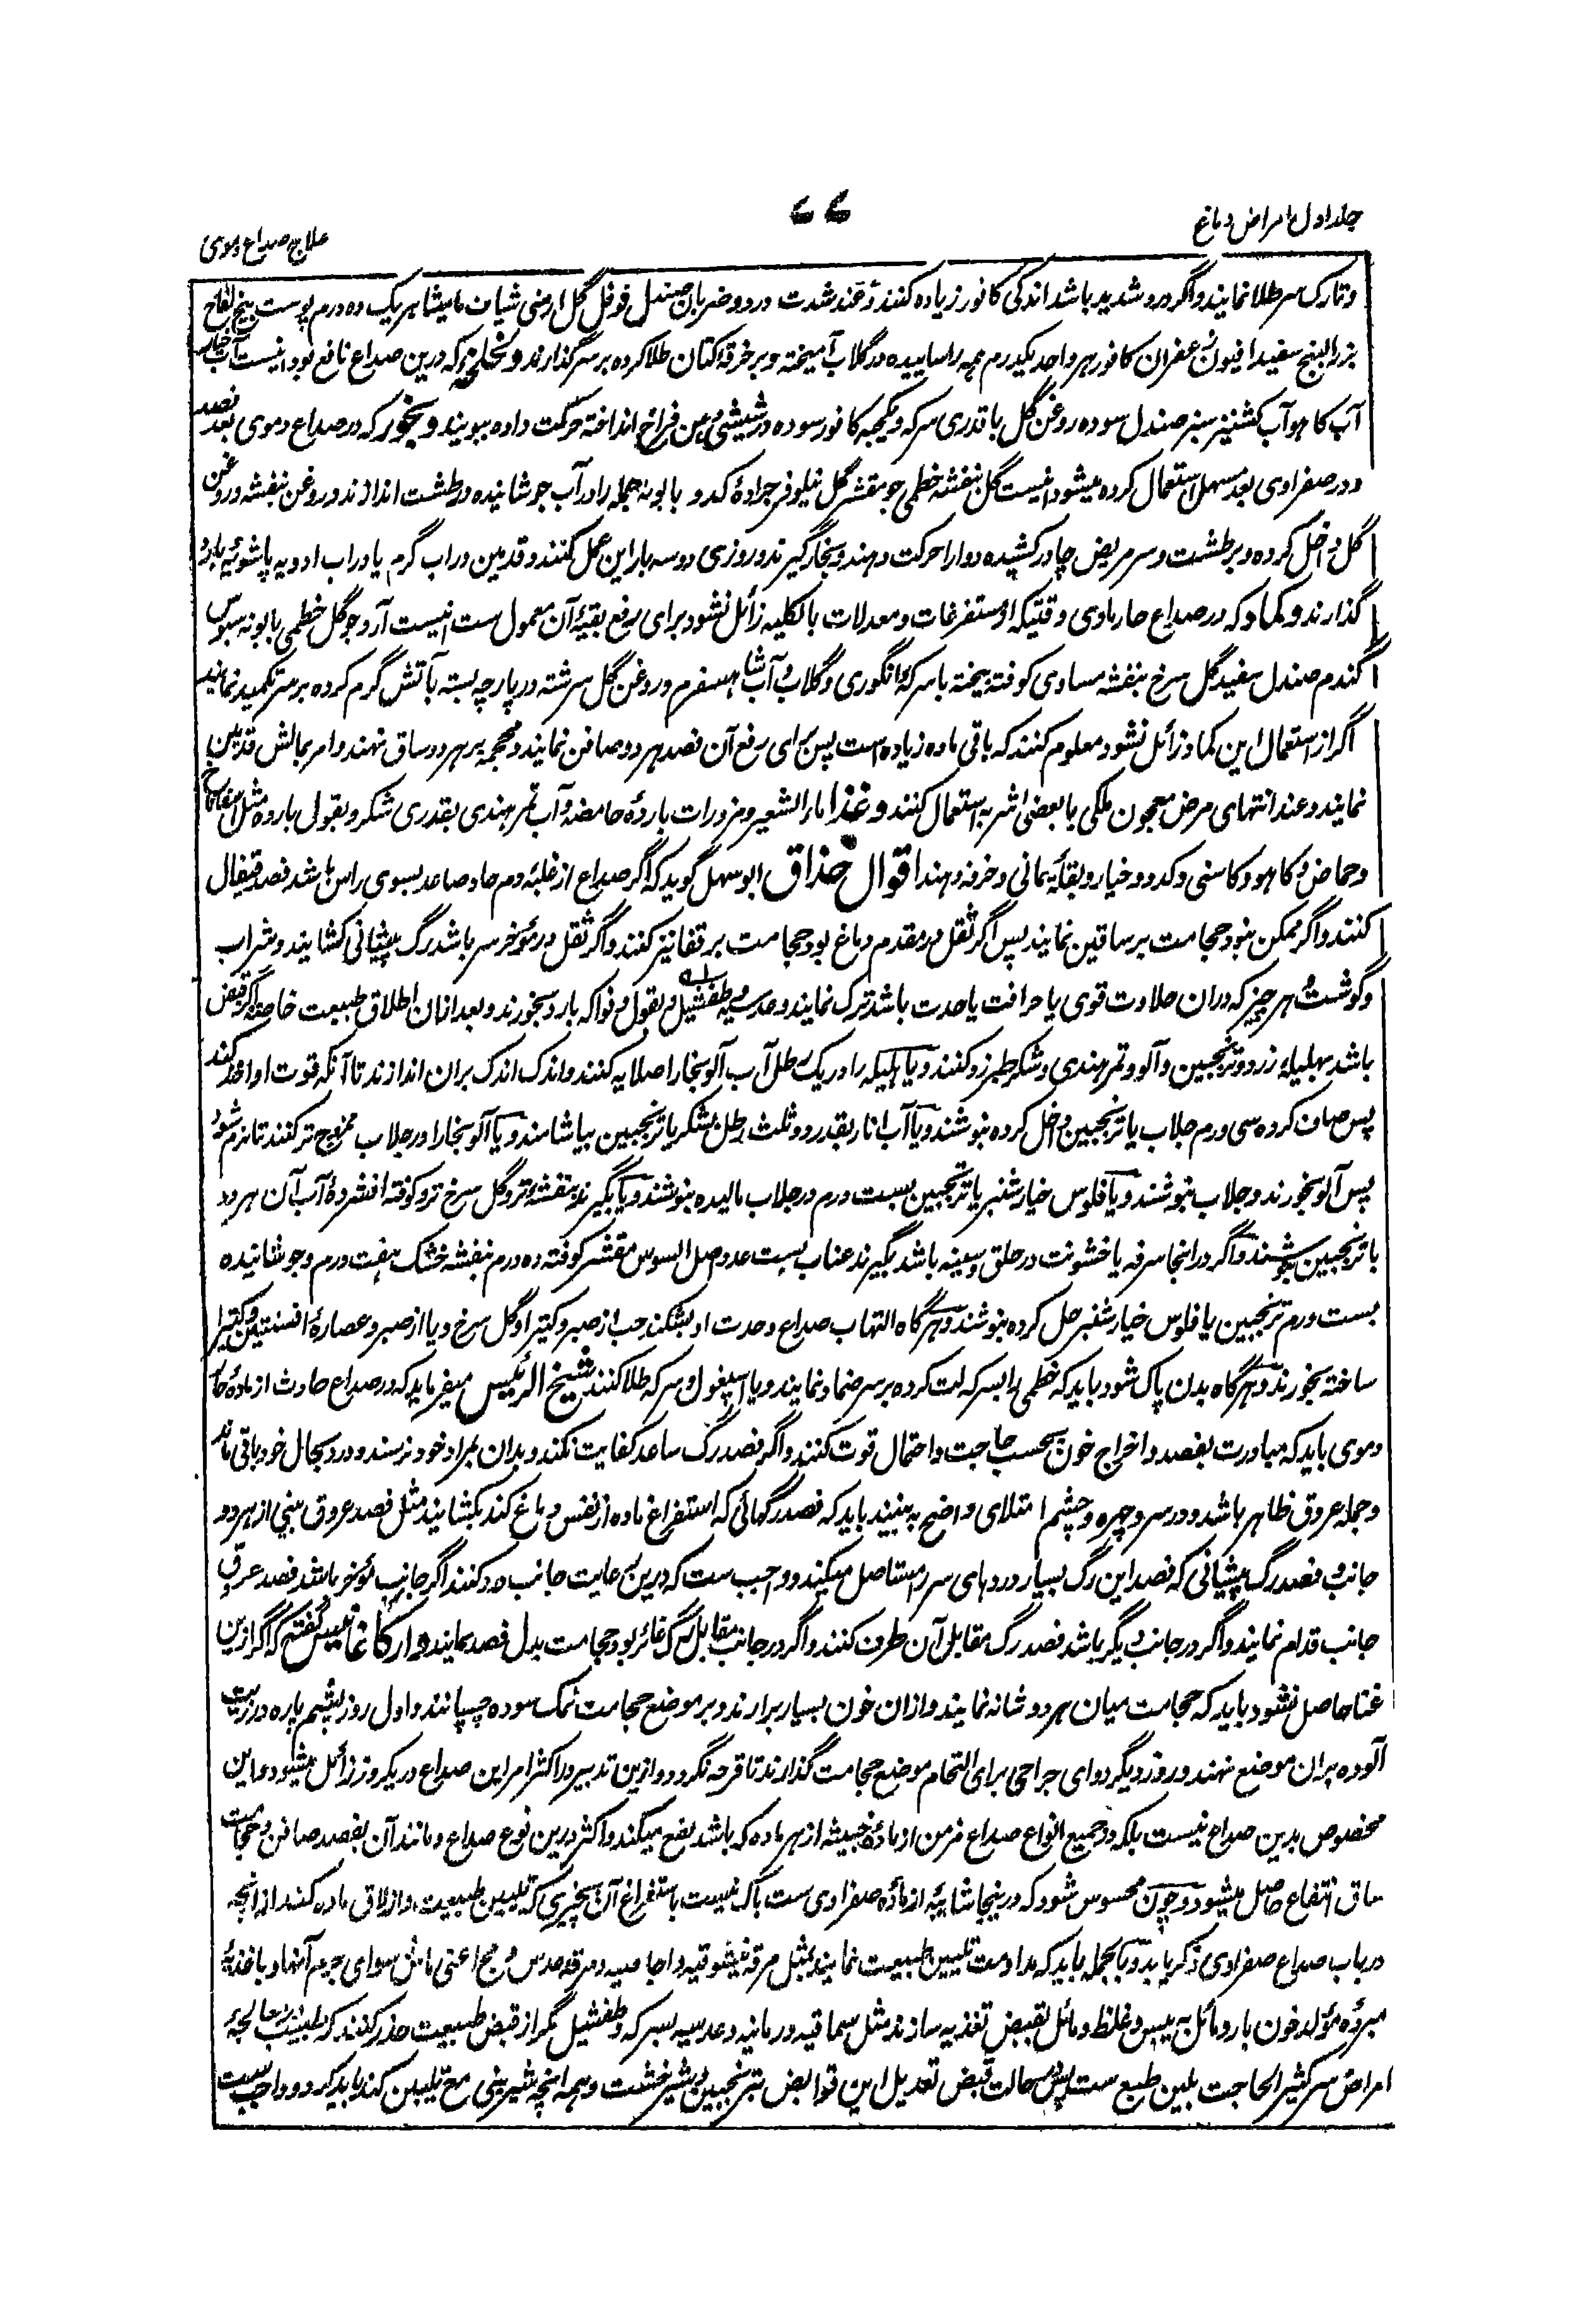 جلد اول امراض دماغ
۷۷
علاج صداع دموی
و تارک سر طلا نمایند و اگر درد شدید باشد اندکی کافور زیاده کنند و عند شدت درد و ضربان صندل فوفل گل ارمنی شیاف مامیثا هریک ده درم پوست بیخ لفاح
بزرالبنج سفید افیون زعفران کافور هر واحد یکدرم همه را ساییده در گلاب آمیخته و بر خرقه کتان طلا کرده بر سر گذارند و لخلخه که درین صداع نافع بود اینست آب خیار
آب کاهو آب کشنیز سبز صندل سوده روغن گل با قدری سرکه و یکحبه کافور سوده در شیشی دهن فراخ انداخته حرکت داده ببویند و بخور که در صداع دموی بعد فصد
و در صفراوی بعد مسهل استعمال کرده میشود اینست گل بنفشه خطمی جو مقشر گل نیلوفر جرادهٔ کدو بابونه جمله را در آب جوشانیده در طشت اندازند و روغن بنفشه و روغن
گل داخل کرده و بر طشت و سر مریض چادر کشیده دوا را حرکت دهند و بخار گیرند و روزی دو سه بار این عمل کنند و قدمین در اب گرم یا در اب ادویه پاشوئیه بارد
گذارند و کماد که در صداع حار مادی وقتیکه از مستفرغات و معدلات بالکلیه زائل نشود برای رفع بقیهٔ آن معمول ست اینست آرد جو گل خطمی بابونه سبوس
گندم صندل سفید گل سرخ بنفشه مساوی کوفته بیخته با سرکه انگوری و گلاب و آب شاهسفرم و روغن گل سرشته در پارچه بسته بآتش گرم کرده بر سر تکمید نمایند
اگر از استعمال این کماد زائل نشود معلوم کنند که باقی ماده زیاده است پس برای رفع آن فصد هر دو صافن نمایند و محجمه بر هر دو ساق نهند و امر بمالش قدمین
نمایند و عند انتهای مرض معجون ملکی با بعضی اشربه استعمال کنند و غذا ماء الشعیر و مزورات باردهٔ حامضه و آب تمر هندی بقدری شکر و بقول بارده مثل اسفاناخ
و حماض و کاهو و کاسنی و کدو و خیار و بقلهٔ یمانی و خرفه دهند اقوال حذاق ابوسهل گوید که اگر صداع از غلبهٔ دم حاد صاعد بسوی راس باشد فصد قیفال
کنند و اگر ممکن نبود حجامت بر ساقین نمایند پس اگر ثقل در مقدم دماغ بود حجامت بر قفا نیز کنند و اگر ثقل در مؤخر سر باشد رگ پیشانی کشایند و شراب
و گوشت و هر چیز که دران حلاوت قوی یا حرافت یا حدت باشد ترک نمایند و عدسیه و طفشیل و بقول و فواکه بارد بخورند و بعد ازان اطلاق طبیعت خاصه اگر قبض
باشد بهلیلهٔ زرد و ترنجبین و آلو و تمر هندی و شکر طبرزد کنند و یا هلیله را در یک رطل آب آلو بخارا صلایه کنند و اندک اندک بران اندازند تا آنکه قوت او اخذ کند
پس صاف کرده سی درم جلاب یا ترنجبین داخل کرده بنوشند و یا آب انار بقدر دو ثلث رطل بشکر یا ترنجبین بیاشامند و یا آلو بخارا در جلاب ممزوج تر کنند تا نرم شود
پس آلو بخورند و جلاب بنوشند و یا فلوس خیارشنبر یا ترنجبین بست درم در جلاب مالیده بنوشند و یا بگیرند بنفشه تر و گل سرخ تر و کوفته افشردهٔ آب آن هر دو
با ترنجبین بنوشند و اگر درانجا سرفه یا خشونت در حلق و سینه باشد بگیرند عناب بست عدد اصل السوس مقشر کوفته ده درم بنفشه خشک هفت درم و جوشانیده
بست درم ترنجبین یا فلوس خیارشنبر حل کرده بنوشند و هرگاه التهاب صداع و حدت او بشکند حب از صبر و کتیرا و گل سرخ و یا از صبر و عصارهٔ افسنتین و کتیرا
ساخته بخورند و هرگاه بدن پاک شود باید که خطمی را بسرکه لت کرده بر سر ضماد نمایند و یا اسپغول و سرکه طلا کنند شیخ الرئیس میفرماید که در صداع حادث از مادهٔ حار
دموی باید که مبادرت بفصد و اخراج خون بحسب حاجت و احتمال قوت کنند و اگر فصد رگ ساعد کفایت نکند و بدان بمراد خود نرسند و درد بحال خود باقی ماند
و جمله عروق ظاهر باشد و در سر و چهره و چشم امتلای واضح به بینند باید که فصد رگهائی که استفراغ ماده از نفس دماغ کند بکشایند مثل فصد عروق بینی از هر دو
جانب و فصد رگ پیشانی که فصد این رگ بسیار دردهای سر را مستاصل میکند و واجب ست که درین رعایت جانب درد کنند اگر جانب مؤخر باشد فصد عرق
جانب قدام نمایند و اگر در جانب دیگر باشد فصد رگ مقابل آن طرف کنند و اگر در جانب مقابل رگ غائر بود حجامت بدل فصد نمایند و ارکاغانیس گفته که اگر ازین
غنا حاصل نشود باید که حجامت میان هر دو شانه نمایند و ازان خون بسیار برارند و بر موضع حجامت نمک سوده چسپانند و اول روز پشم پاره در زیت
آلوده بران موضع نهند و روز دیگر دوای جراحی برای التحام موضع حجامت گذارند تا قرحه نگردد و ازین تدبیر در اکثر امر این صداع در یکروز زائل میشود و این
مخصوص بدین صداع نیست بلکه در جمیع انواع صداع مزمن از مادهٔ خبیثه از هر ماده که باشد نفع میکند و اکثر درین نوع صداع و مانند آن بفصد صافن و حجامت
ساق انتفاع حاصل میشود و چون محسوس شود که درینجا شایبهٔ از مادهٔ صفراوی ست باک نیست باستفراغ آن بچیزی که تلیین طبیعت و ازلاق ماده کند از انچه
در باب صداع صفراوی ذکر یابد و بالجمله باید که مداومت تلیین طبیعت نمایند بمثل مرقهٔ نیشوقیه و اجاصیه و مرقهٔ عدس و مج اعنی ماش سوای جرم آنها و باغذیهٔ
مبردهٔ مؤلد خون بارد مائل به یبس و غلظ و مائل بقبض تغذیه سازند مثل سماقیه و رمانیه و عدسیه بسرکه و طفشیل مگر از قبض طبیعت حذر کنند که طبیب را در معالجهٔ
امراض سر کثیر الحاجت بلین طبع ست پس بحالت قبض تعدیل این قوابض بترنجبین و شیرخشت و همه انچه شیرینی مع تلیین کند باید کرد و واجب ست